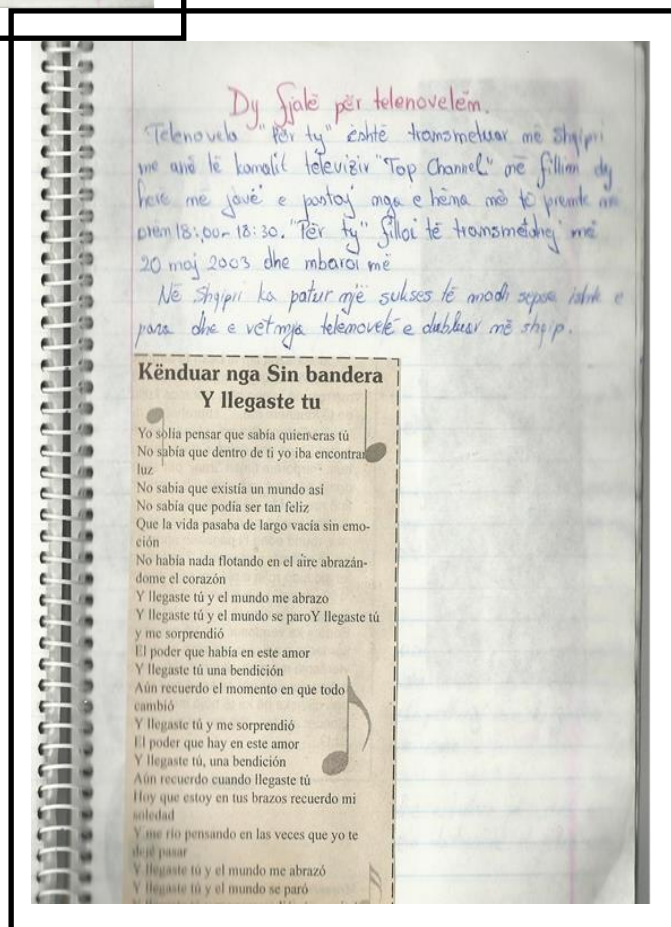 Dy fjalë për telenovelën.
Telenovela "Për ty" është transmetuar në Shqipri
me anë të kanalit televiziv "Top Channel" në fillim dy
herë në javë e pastaj nga e hëna në të premte në
orën 18:00-18:30. "Për ty" filloi të transmetohej më
20 maj 2003 dhe mbaroi më
Në Shqipri ka patur një sukses të madh sepse ishte e
para dhe e vetmja telenovelë e dubluar në shqip.
Kënduar nga Sin bandera
Y llegaste tu
Yo solia pensar que sabía quien eras tú
No sabía que dentro de ti yo iba encontrar
luz
No sabia que existía un mundo así
No sabía que podía ser tan feliz
Que la vida pasaba de largo vacía sin emo-
ción
No había nada flotando en el aire abrazán-
dome el corazón
Y llegaste tú y el mundo me abrazo
Y llegaste tú y el mundo se paroY llegaste tú
y me sorprendió
El poder que había en este amor
Y llegaste tú una bendición
Aún recuerdo el momento en que todo
cambió
Y llegaste tú y me sorprendió
El poder que hay en este amor
Y llegaste tú, una bendición
Aún recuerdo cuando llegaste tú
Hoy que estoy en tus brazos recuerdo mi
soledad
Y me río pensando en las veces que yo te
dejé pasar
Y llegaste tú y el mundo me abrazó
Y llegaste tú y el mundo se paró